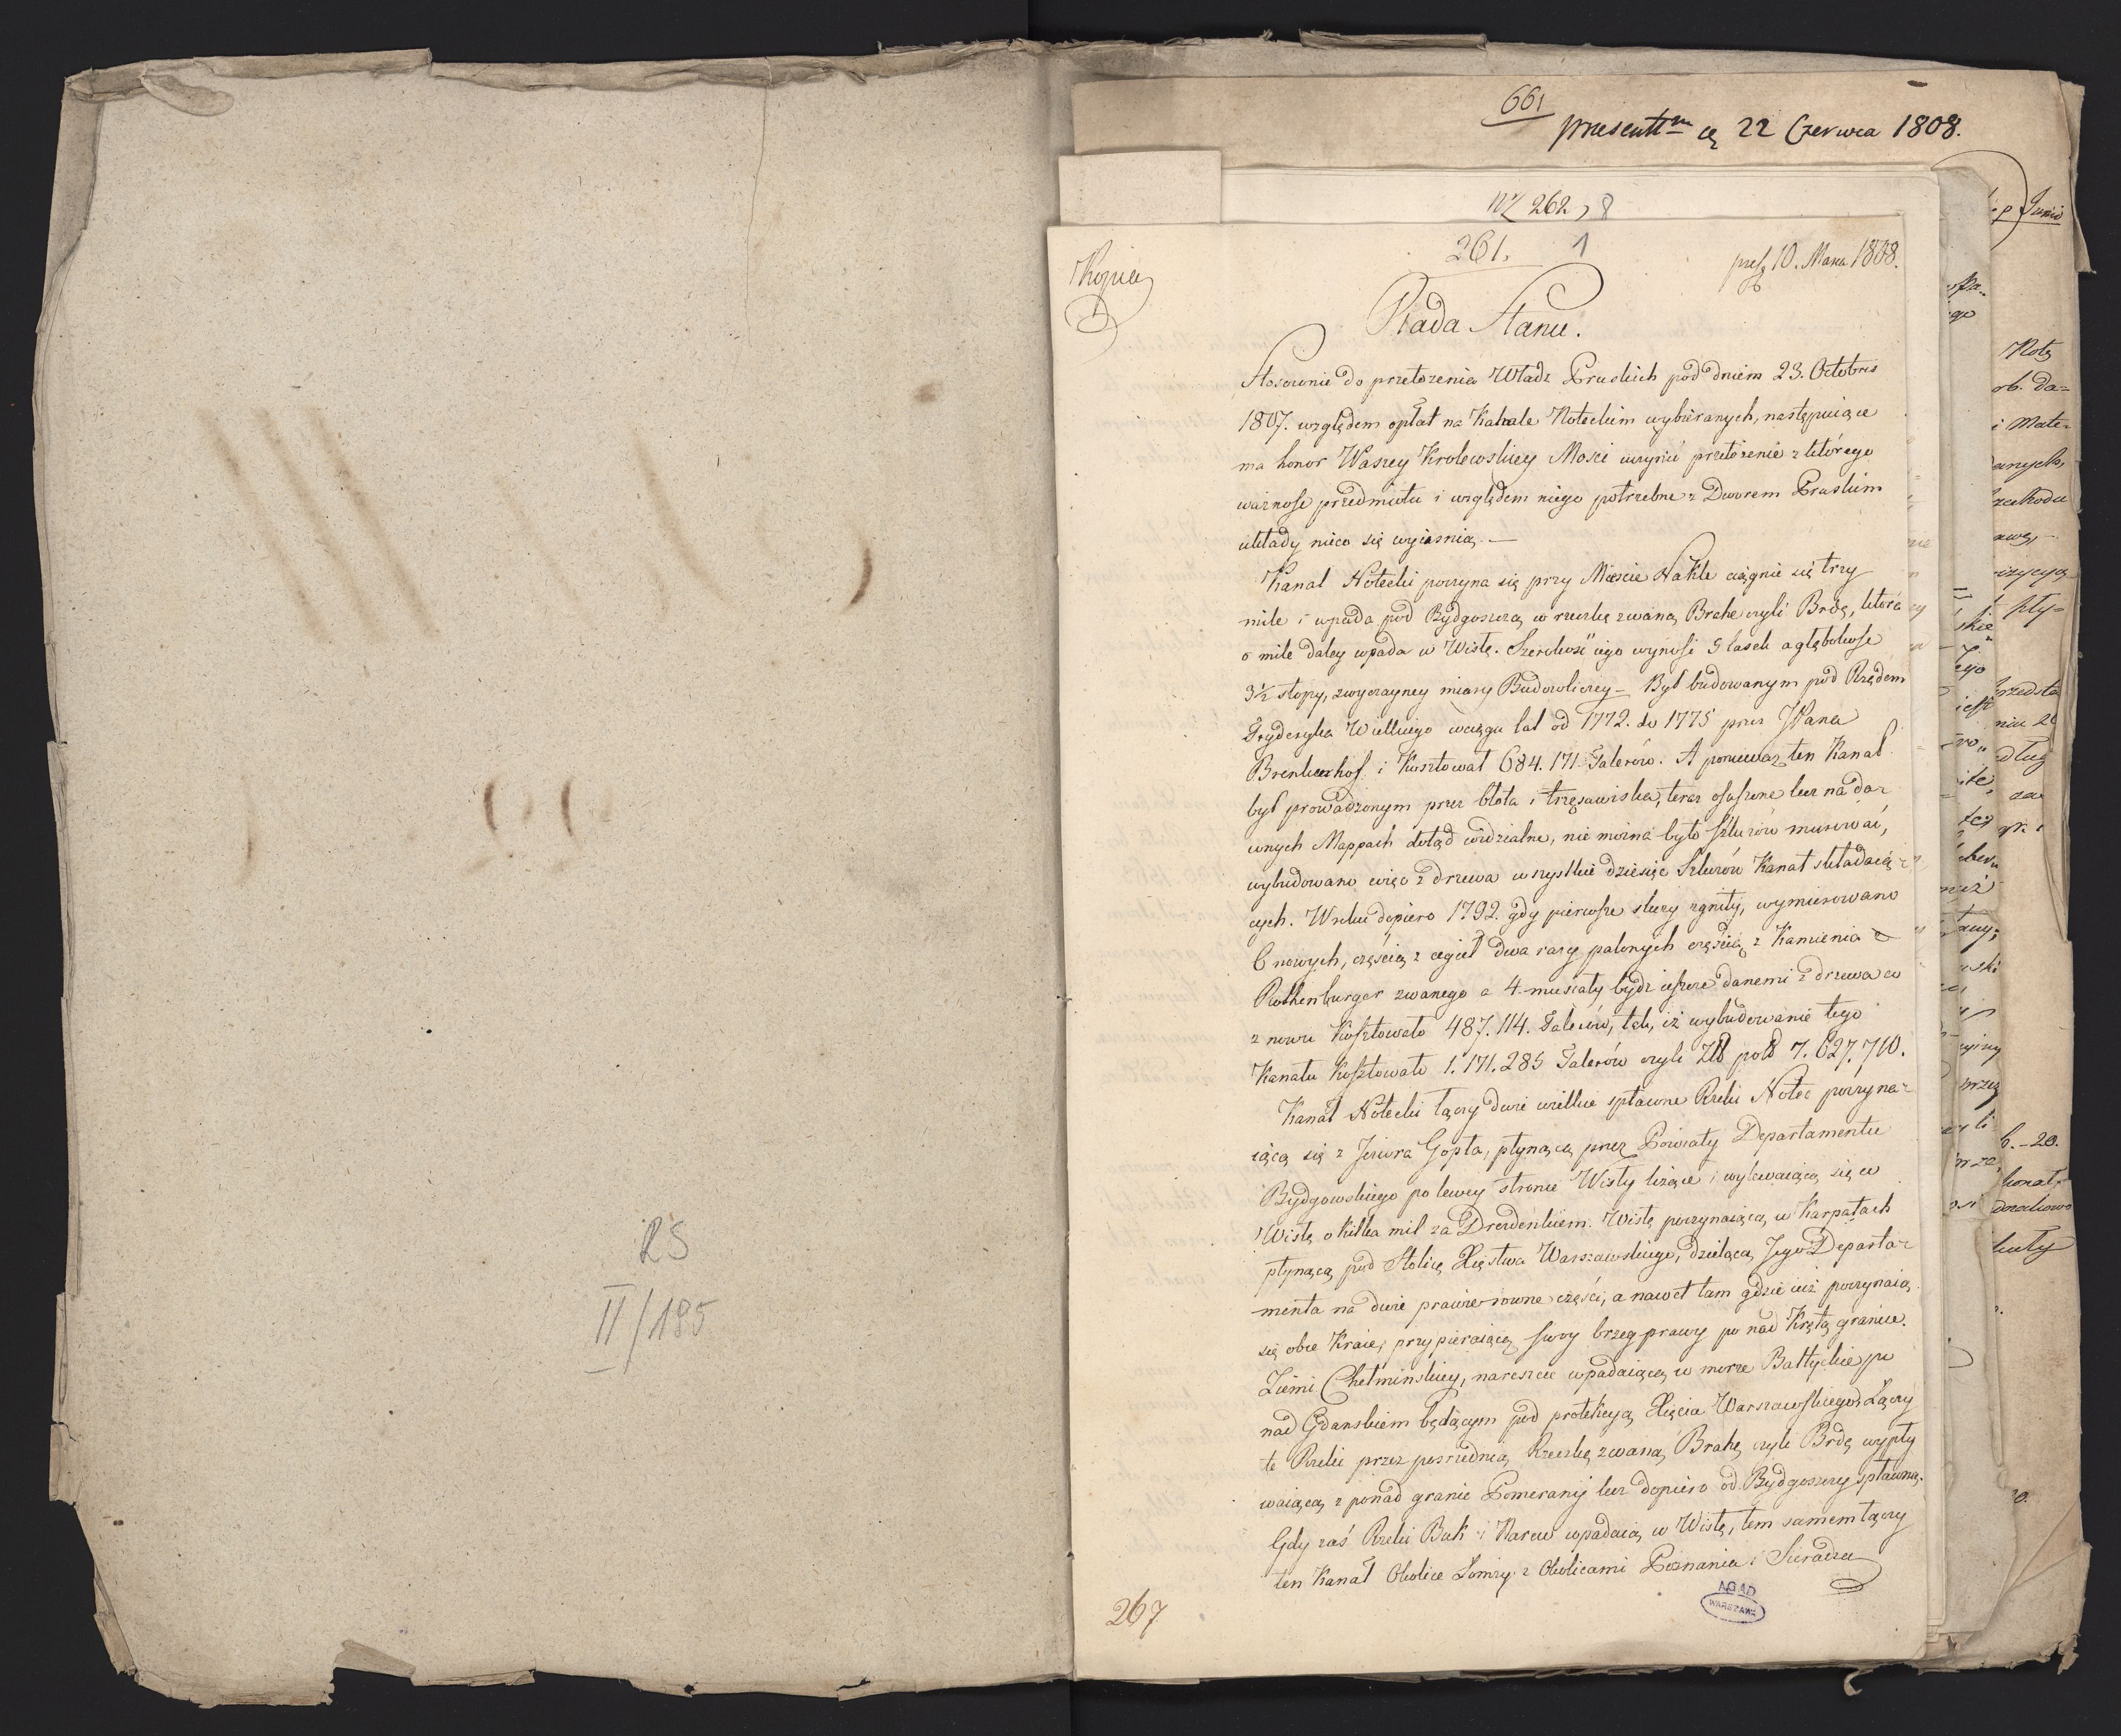 RS
II/185
661
presentt^m
22 Czerwca 1808.
N 262, 8
Kopia
261. 1
10. Marca 1808.
Rada Stanu.
Stosownie do przełożenia Władz Pruskich pod dniem 23. Octobris
1807. względem opłat na Kanale Noteckim wybieranych, następuiące
ma honor Waszey Krolewskiey Mosci uczynić przełożenie z którego
ważność przedmiotu i względem niego potrzebne z Dworem Pruskim
układy nieco się wyiaśnią. —
Kanal Notecki poczyna się przy Mieście Nakle ciągnie się trzy
mile i wpada pod Bydgoszczą w rzeczkę zwaną Brahe czyli Brdą, która
o mile daley wpada w Wisłę. Szerokość iego wynosi 5 lasek a głębokość
3½ stopy, zwyczayney miary Budowliczey — Był budowanym pod Rządem
Fryderyka Wielkiego wciągu lat od 1772. do 1775 przez JPana
Brenkenhof i Kosztował 684.171 Talerów. A ponieważ ten Kanał
był prowadzonym przez błota i trzęsawiska, teraz osuszone lecz na da-
wnych Mappach dotąd widzialne, nie można było szluzów murować,
wybudowano więc z drzewa wszystkie dziesięć Szluzów Kanał składaią-
cych. W roku dopiero 1792. gdy pierwsze sluzy zgniły, wymurowano
6 nowych, częścią z cegieł dwa razy palonych częścią z Kamienia
Rothenburger zwanego a 4. musiały bydź ieszcze danemi z drzewa co
znowu Kosztowało 487.114. Talerów, tak, iż wybudowanie tego
Kanału Kosztowało 1.171.285 Talerów czyli Zł pol 7.627.710.
Kanał Notecki łączy dwie wielkie spławne Rzeki Noteć poczyna-
iącą się z Jeziora Gopła, płynącą przez Powiaty Departamentu
Bydgowskiego po lewey stronie Wisły leżące i wylewaiącą się w
Wistę o kilka mil za Drezdenkiem. Wisłę poczynaiącą w Karpatach
płynącą pod Stolicę Xięstwa Warszawskiego, dzielącą Jego Departa-
menta na dwie prawie rowne części, a nawet tam gdzie iuż poczynaią
się obce Kraie, przypieraiącą swoy brzeg prawy po nad Krętą granice.
Ziemi Chełminskiey, nareszcie wpadaiącą w morze Bałtyckie po
nad Gdanskiem będącym pod protekcyą Xięcia Warszawskiego. Łączy
te Rzeki przez pośrednią Rzeczkę zwaną Brahę czyli Brdę wypły
waiącą z ponad granic Pomeranij lecz dopiero od Bydgoszczy spławną.
Gdy zaś Rzeki Buh i Narew wpadaią w Wisłę, tem samem łączy
ten Kanał Okolice Łomży z Okolicami Poznania i Sieradza
AGAD
WARSZAWA
267